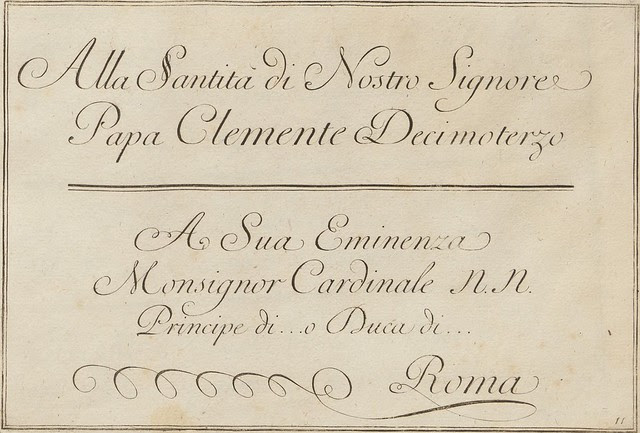 Alla Santità di Nostro Signore
Papa Clemente Decimoterzo
A Sua Eminenza
Monsignor Cardinale N. N.
Principe di...o Duca di...
Roma
11